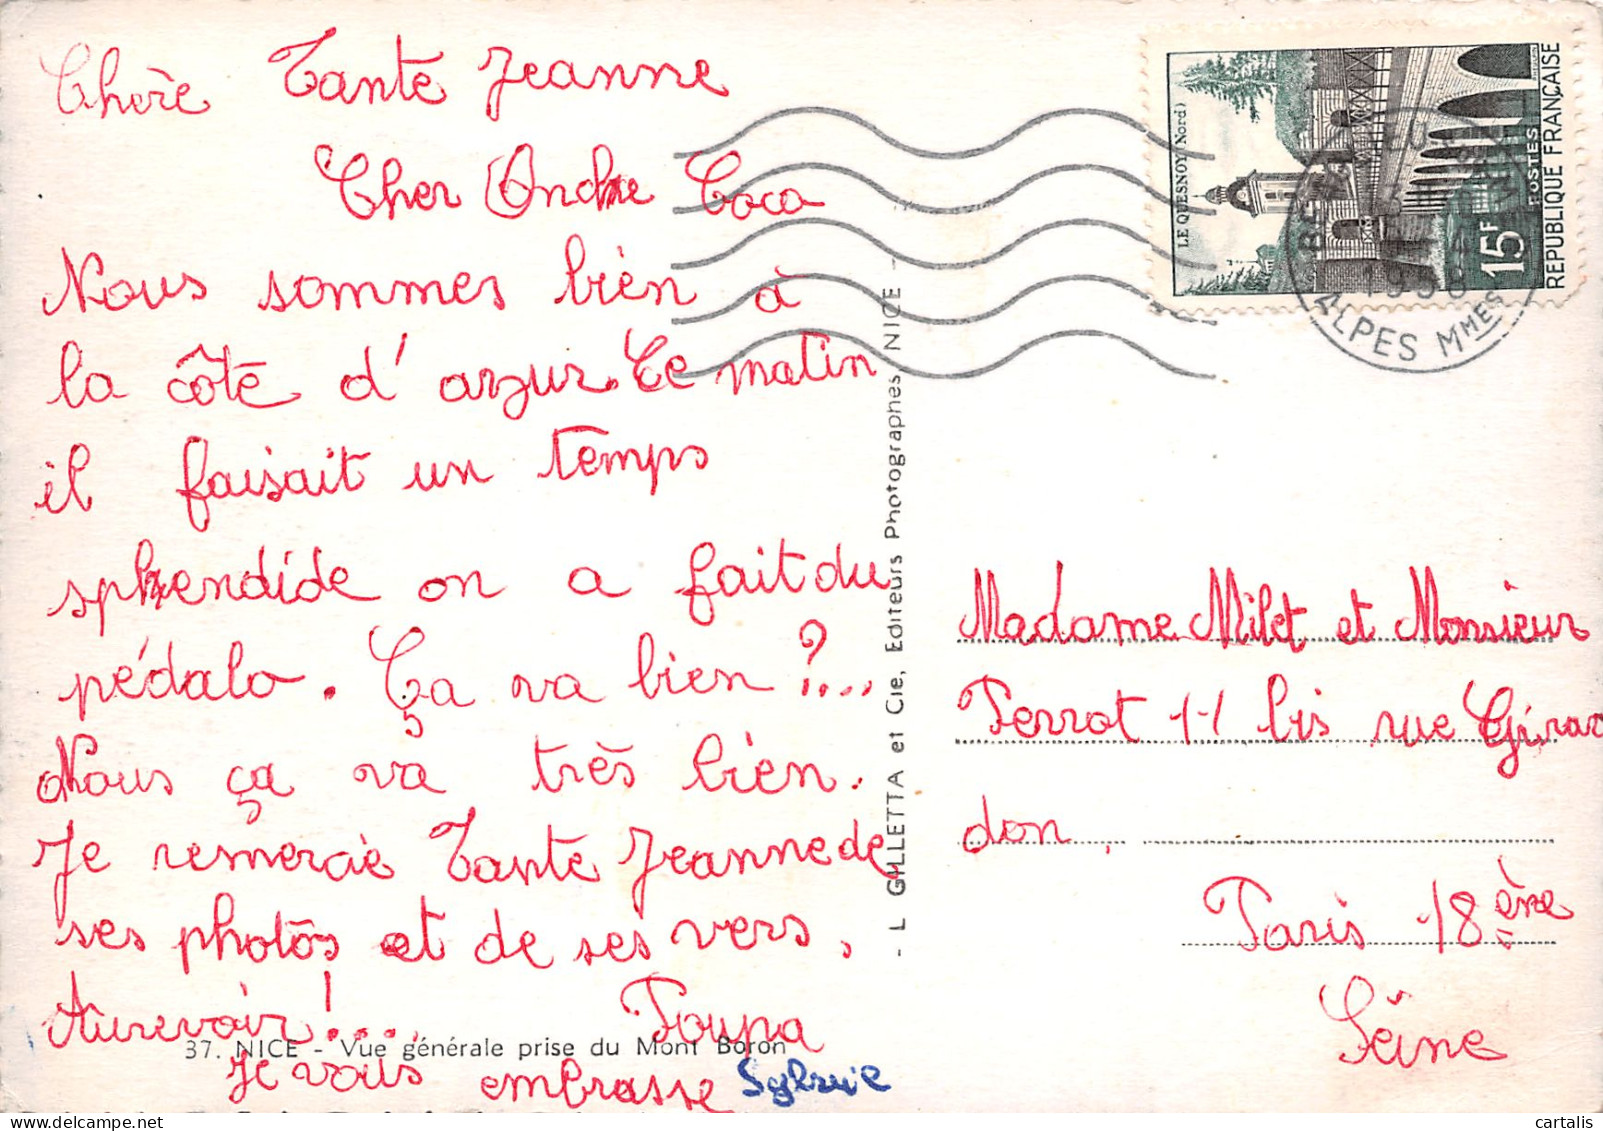 Chère Tante Jeanne
Cher Oncle Coco
Nous sommes bien à
la côte d'azur. Ce matin
il faisait un temps
splendide on a fait du
pédalo. Ça va bien ?....
Nous ça va très bien.
Je remercie Tante Jeanne de
ses photos et de ses vers.
Aurevoir !....
Poupa
Je vous embrasse
Sylvie
37. NICE - Vue générale prise du Mont Boron
- L GILLETTA et Cie, Editeurs Photographes, NICE -
LE QUESNOY (Nord)
15F
POSTES
REPUBLIQUE FRANÇAISE
ALPES Mmes
Madame Milet et Monsieur
Perrot 11 bis rue Girar
don.
Paris 18 ème
Seine
cartalis